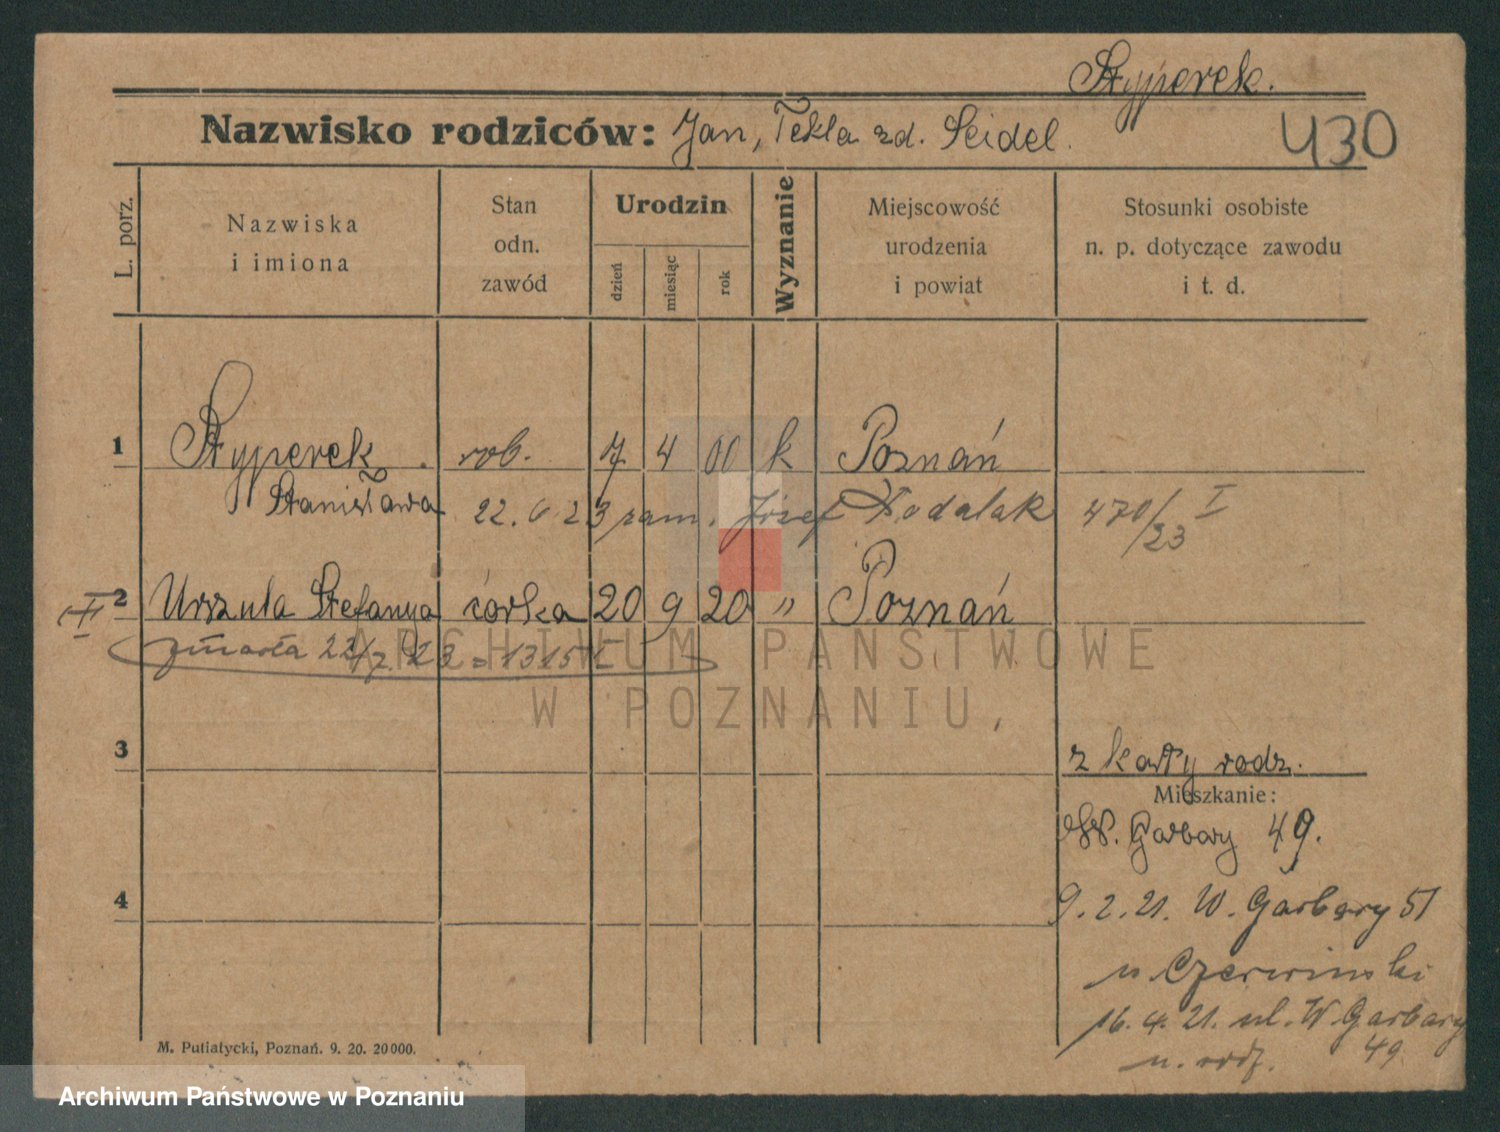 Styperek.
Nazwisko rodziców: Jan, Tekla zd. Seidel.
430
L. porz.
Nazwiska i imiona
Stan odn. zawód
Urodzin
dzień
miesiąc
rok
Wyznanie
Miejscowość urodzenia i powiat
Stosunki osobiste n. p. dotyczące zawodu i t. d.
1 Styperek rob. 7 4 00 k Poznań
Stanisława 22. 6 23 zam. Józef Kodalak 470/23 I
2 Urszula Stefanya córka 20 9 20 " Poznań
zmarła 22/7. 23 = 1315
ARCHIWUM PAŃSTWOWE
W POZNANIU
3
z karty rodz.
Mieszkanie:
W. Garbary 49.
4
9. 2. 21. W. Garbary 51
u Czerwinski
16. 4. 21. ul. W. Garbary
49
u. rodz.
M. Putiatycki, Poznań. 9. 20. 20000.
Archiwum Państwowe w Poznaniu